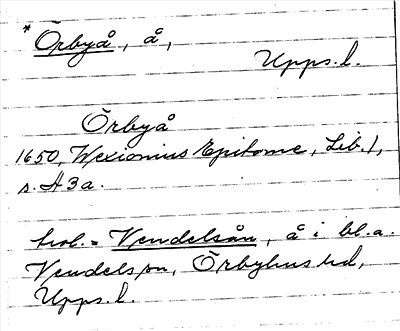 *Örbyå, å,
Upps.l.
Örbyå
1650, Wexionius Epitome, Lib. 1,
s. H 3 a.
trol. = Vendelsån, å i bl.a.
Vendels sn, Örbyhus hd,
Upps.l.